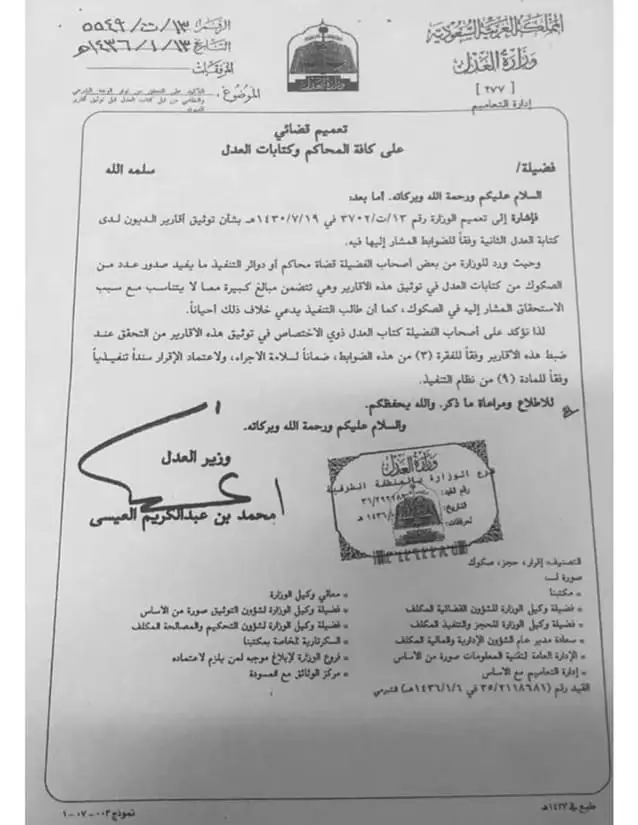 المملكة العربية السعودية
وزارة العدل
[ ٢٧٧ ]
إدارة التعاميم
وزارة العدل
الرقم: ١٣/ت/٥٥٤٩
التاريخ: ١٤٣٦/١/١٣هـ
المرفقات:
الموضوع: التأكيد على التحقق من توفر الوجه الشرعي
والنظامي من قبل كتاب العدل قبل توثيق أقارير
الديون
تعميم قضائي
على كافة المحاكم وكتابات العدل
فضيلة/ سلمه الله
السلام عليكم ورحمة الله وبركاته. أما بعد:
فإشارة إلى تعميم الوزارة رقم ١٣/ت/٣٧٠٢ في ١٤٣٠/٧/١٩هـ بشأن توثيق أقارير الديون لدى
كتابة العدل الثانية وفقاً للضوابط المشار إليها فيه.
وحيث ورد للوزارة من بعض أصحاب الفضيلة قضاة محاكم أو دوائر التنفيذ ما يفيد صدور عدد من
الصكوك من كتابات العدل في توثيق هذه الأقارير وهي تتضمن مبالغ كبيرة مما لا يتناسب مع سبب
الاستحقاق المشار إليه في الصكوك، كما أن طالب التنفيذ يدعي خلاف ذلك أحياناً.
لذا نؤكد على أصحاب الفضيلة كتاب العدل ذوي الاختصاص في توثيق هذه الأقارير من التحقق عند
ضبط هذه الأقارير وفقاً للفقرة (٣) من هذه الضوابط، ضماناً لسلامة الاجراء، ولاعتماد الإقرار سنداً تنفيذياً
وفقاً للمادة (٩) من نظام التنفيذ.
للاطلاع ومراعاة ما ذكر. والله يحفظكم.
والسلام عليكم ورحمة الله وبركاته.
وزير العدل
محمد بن عبدالكريم العيسى
وزارة العدل
فرع الوزارة بالمنطقة الشرقية
رقم القيد:
التاريخ:
المرفقات:
التصنيف: إقرار، حجز، صكوك
صورة لـ:
* مكتبنا
* فضيلة وكيل الوزارة للشؤون القضائية المكلف
* فضيلة وكيل الوزارة للحجز والتنفيذ المكلف
* سعادة مدير عام الشؤون الإدارية والمالية المكلف
* الإدارة العامة لتقنية المعلومات صورة من الأساس
* إدارة التعاميم مع الأساس
القيد رقم (٣٥/٢١١٨٦٨١ في ١٤٣٦/١/٦هـ) الشبرمي
* معالي وكيل الوزارة
* فضيلة وكيل الوزارة لشؤون التوثيق صورة من الأساس
* فضيلة وكيل الوزارة لشؤون التحكيم والمصالحة المكلف
* السكرتارية الخاصة بمكتبنا
* فروع الوزارة لإبلاغ موجبه لمن يلزم لاعتماده
* مركز الوثائق مع المسودة
طبع في ١٤٣٧هـ
نموذج ٠٠٣-٠٧-١